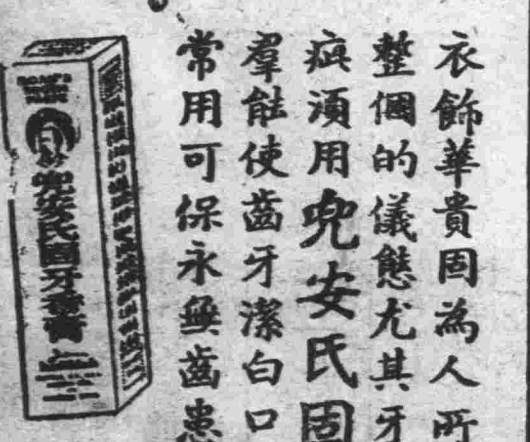 衣飾華貴固為人所
整個的儀態尤其牙
須用兜安氏固
羣能使齒牙潔白口
常用可保永無齒患
兜安氏固牙香膏